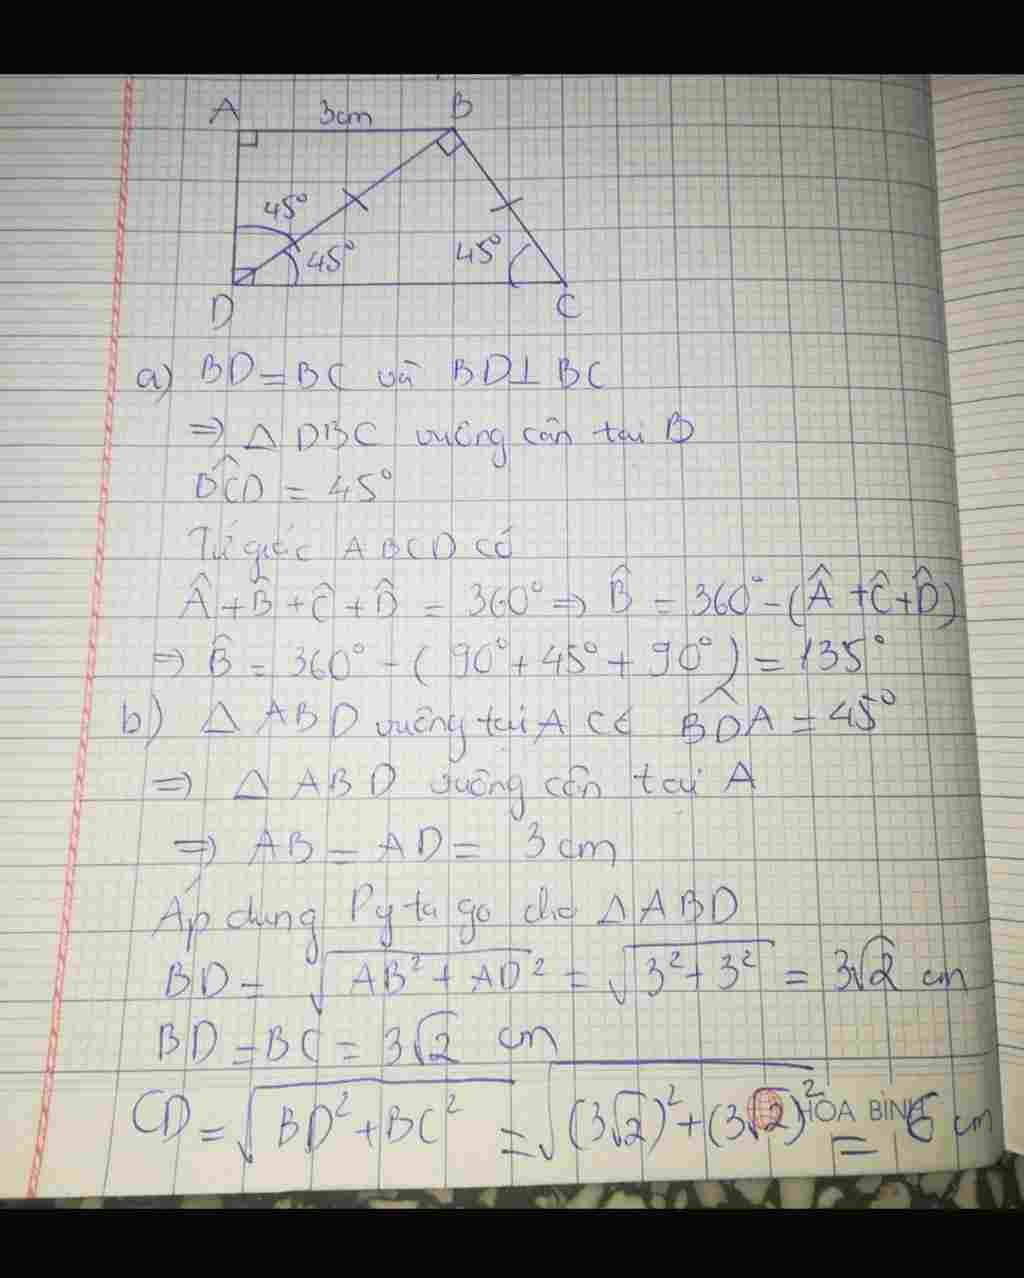 A 3cm B
45°
45° 45°
D C
a) BD = BC và BD ⊥ BC
⇒ △ DBC vuông cân tại B
D̂CD = 45°
Tứ giác ABCD có
Â + B̂ + Ĉ + D̂ = 360° ⇒ B̂ = 360° - (Â + Ĉ + D̂)
⇒ B̂ = 360° - (90° + 45° + 90°) = 135°
b) △ ABD vuông tại A có BD̂A = 45°
⇒ △ ABD vuông cân tại A
⇒ AB = AD = 3 cm
Áp dụng Pytago cho △ ABD
BD = √(AB² + AD²) = √(3² + 3²) = 3√2 cm
BD = BC = 3√2 cm
CD = √(BD² + BC²) = √((3√2)² + (3√2)²) = 6 cm
HÒA BÌNH